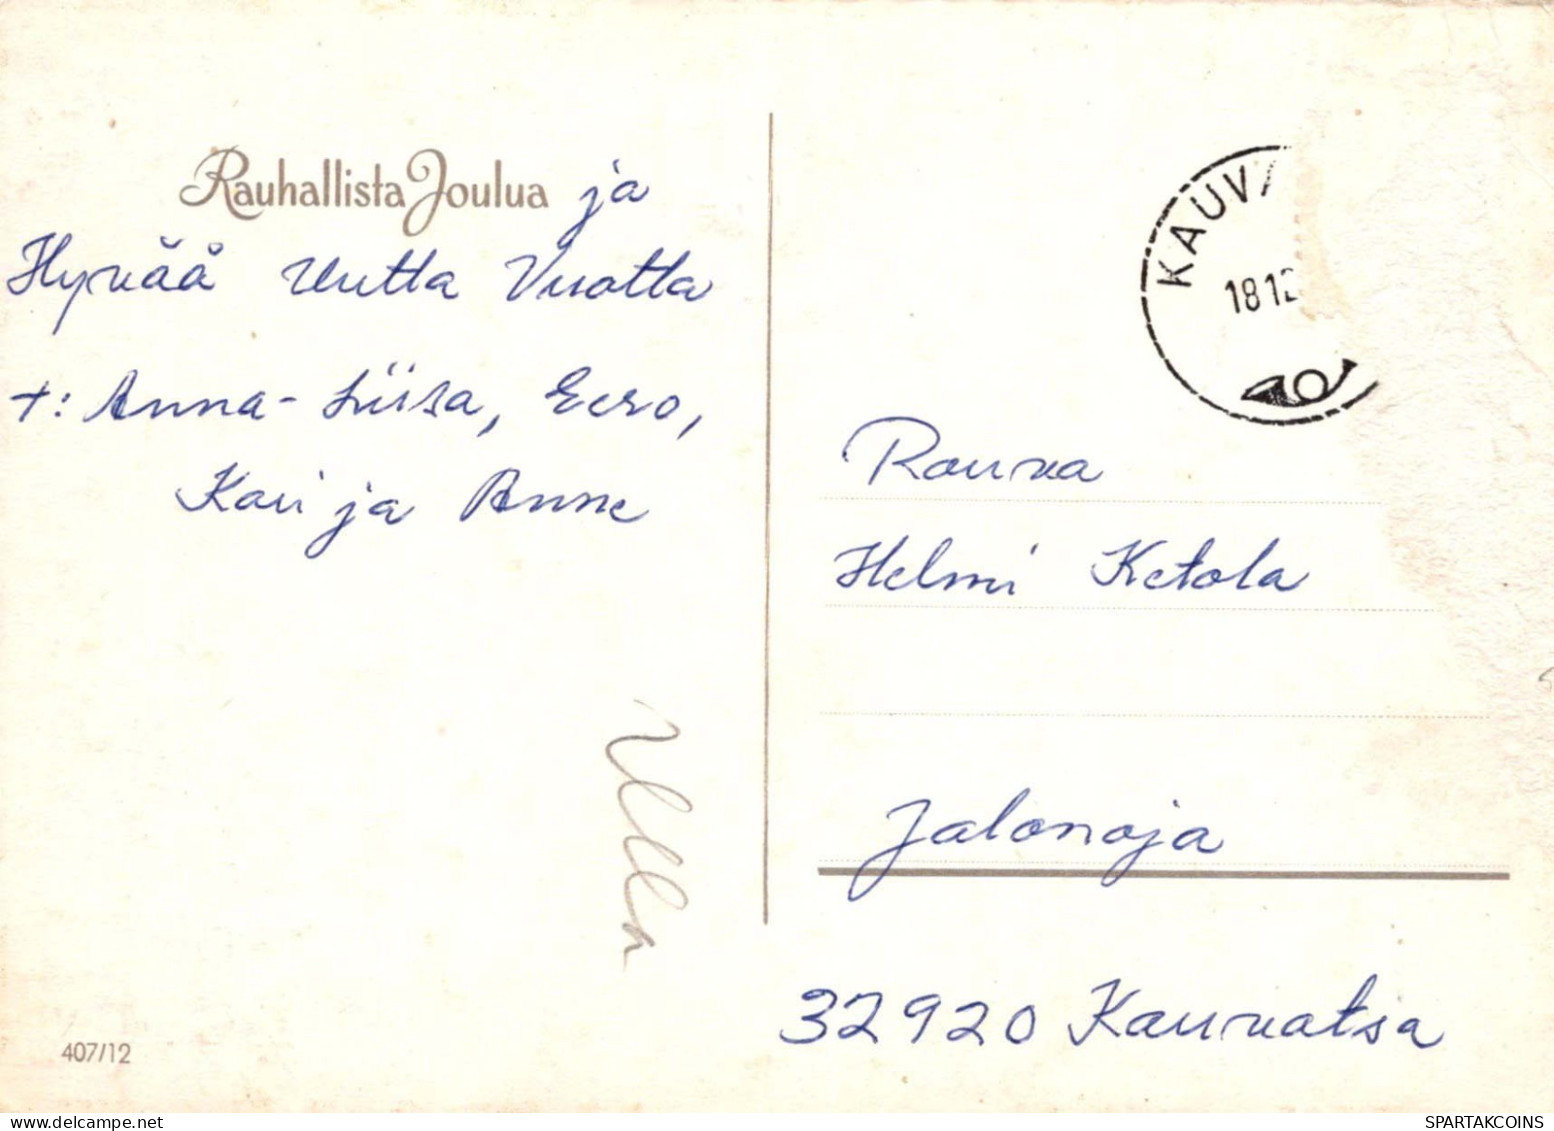 Rauhallista Joulua ja
Hyvää Uutta Vuotta
t: Anna-Liisa, Eero,
Kari ja Anne
Ulla
407/12
KAUVA
18 12
Rouva
Helmi Ketola
Jalonoja
32920 Kauvatsa
delcampe.net
SPARTAKCOINS